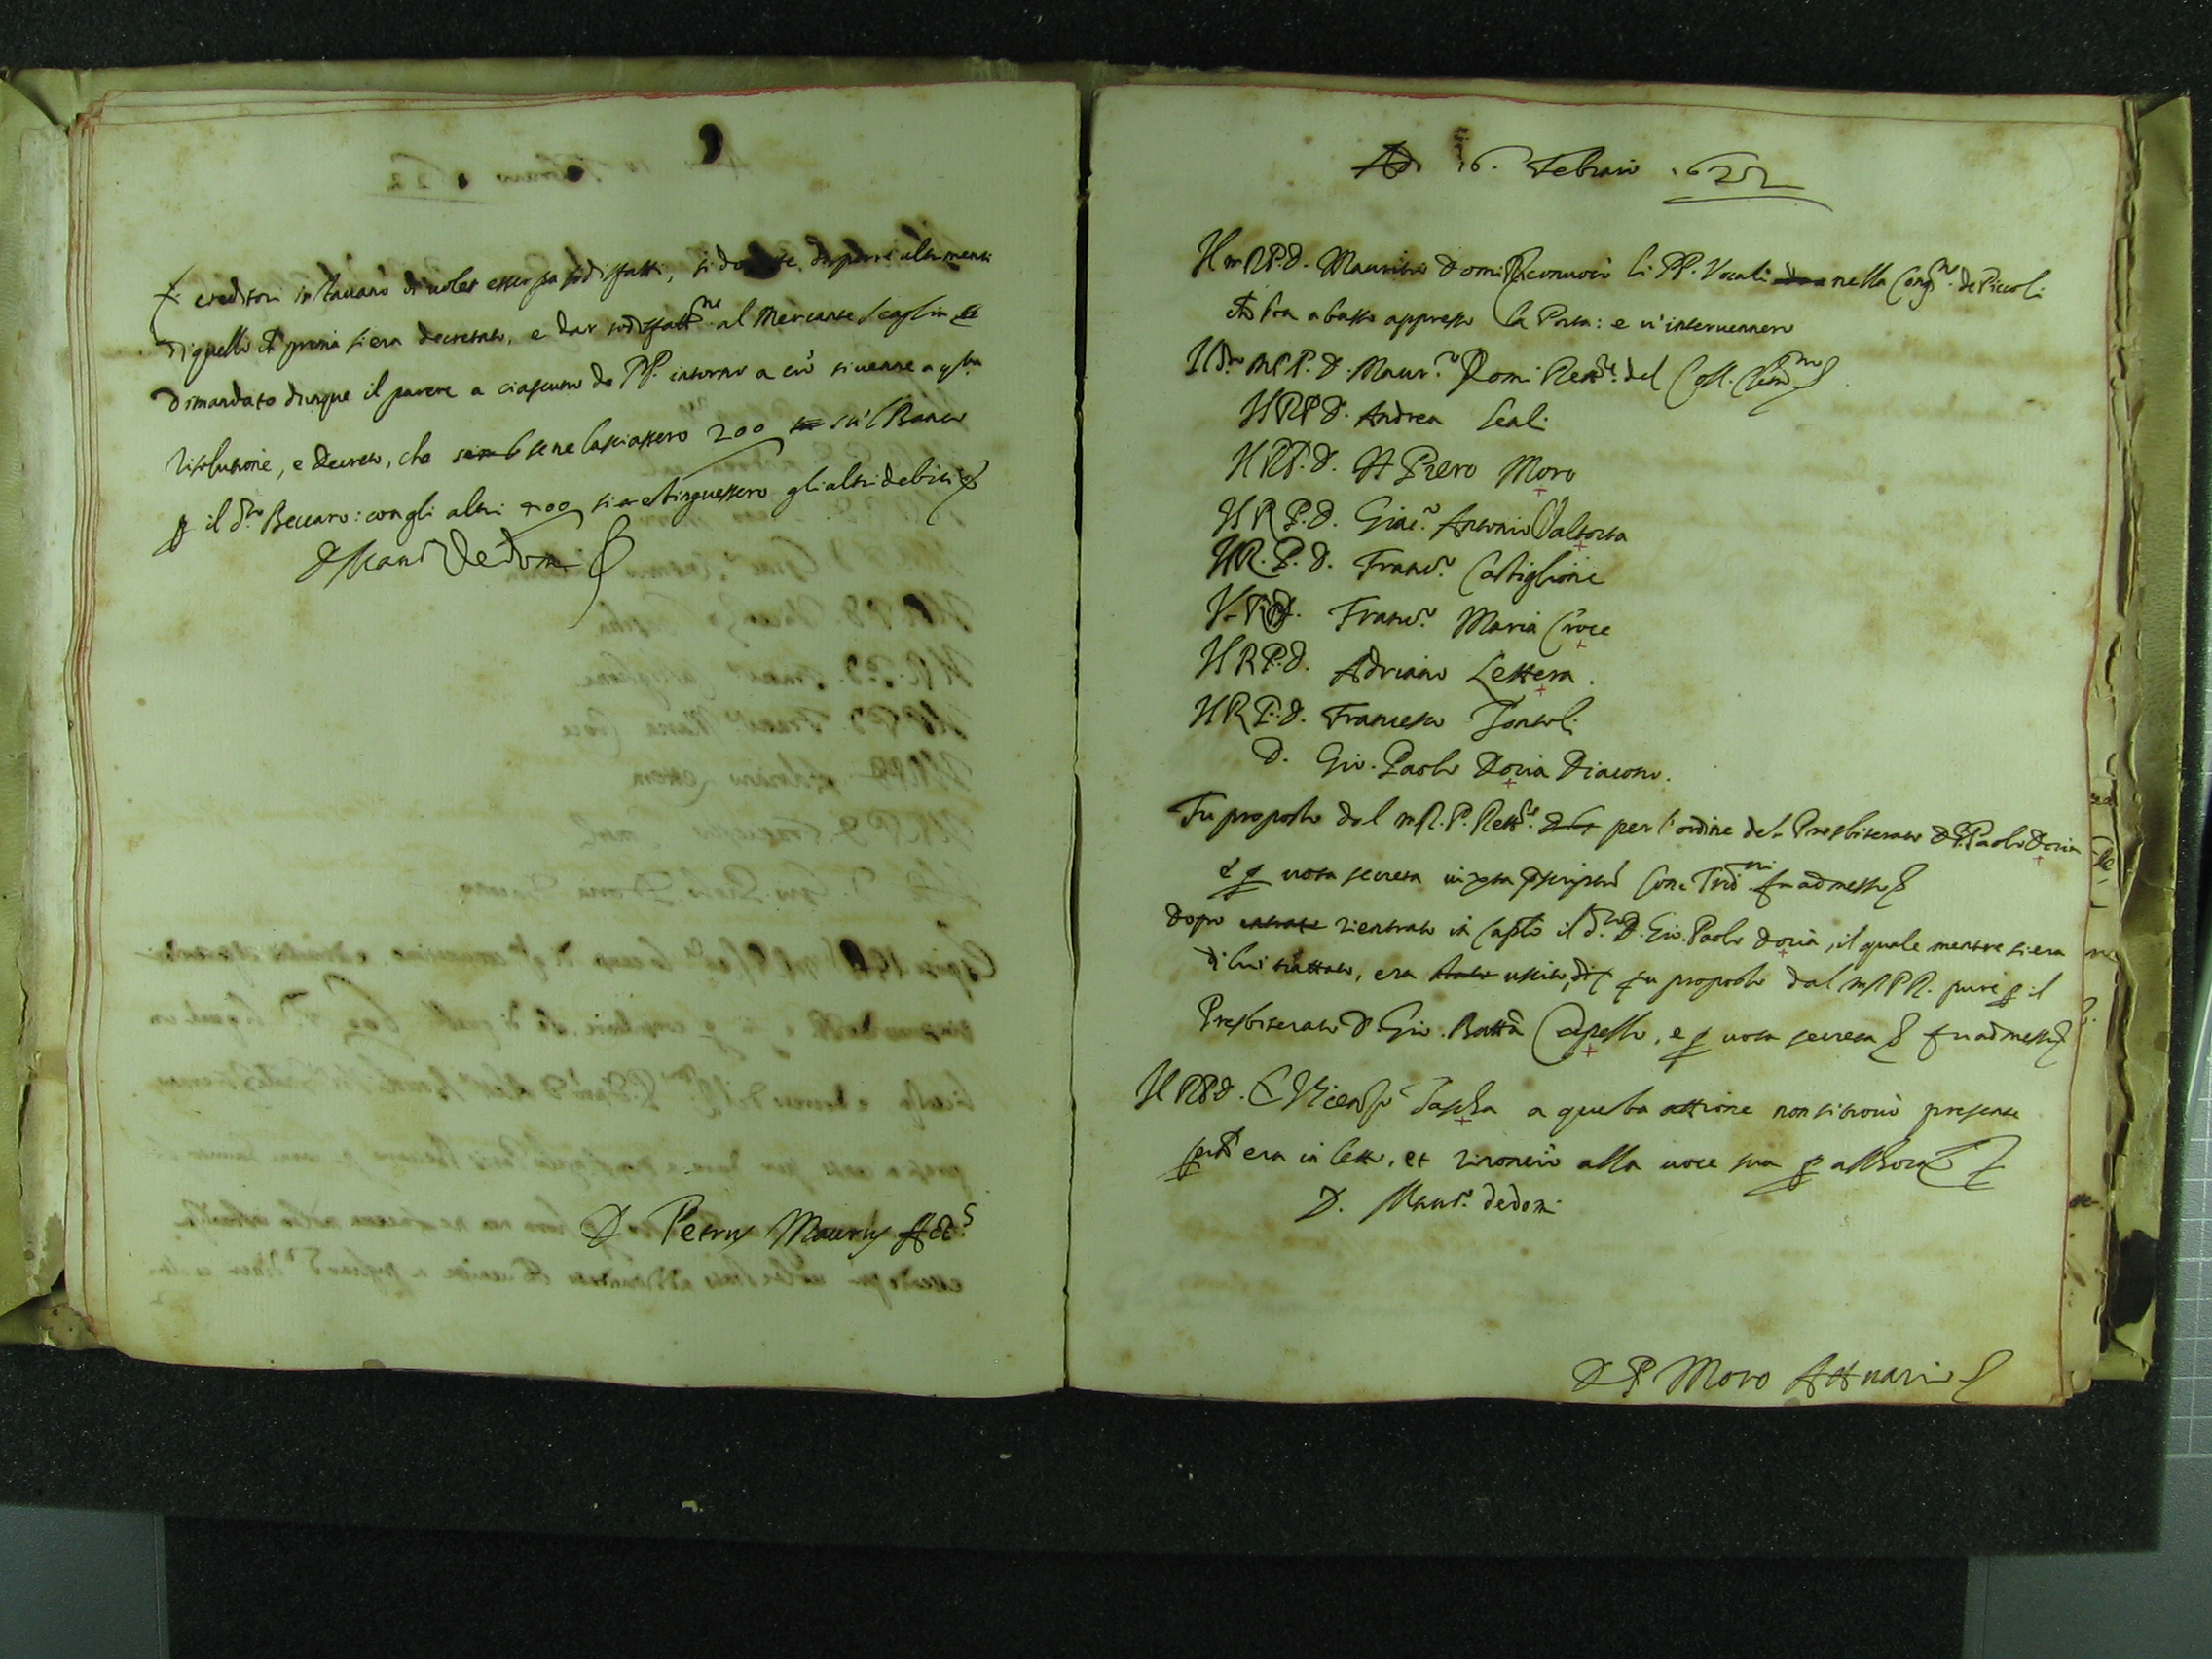 creditori instavano di voler esser sodisfatti, si dovesse disporre altrimenti
di quelli che prima si era decretato, e dar sodisfatt.ne al Mercante Scaglia
Dimandato dunque il parere a ciascuno de PP. intorno a ciò si venne a q.sta
risolutione, e decreto, che se ne lasciassero 200 sù'l Banco
p il d.to Beccaro: con gli altri 200 si estinguessero gli altri debiti
D Petrus Maurus Act.s
Adi 16. Febraio 1622
Il m RP.D. Mauritio Domi convocò li PP. Vocali nella Cong.ne de Piccoli
che sta a basso appresso la Porta: e v'intervennero
Il d.to m R P. D. Maur.o Domi Rett.re del Coll. Clem.no
Il RP D. Andrea Leali
Il RP. D. Piero Moro
Il R P. D. Giac.o Antonio Valtorta
Il R. P. D. Franc.o Castiglione
Il P. D. Franc.o Maria Croce
Il R P. D. Adriano Lettera.
Il R P. D. Francesco Tontoli
D. Gio. Paolo Doria Diacono.
Fu proposto dal m R. P. Rett.re per l'ordine del Presbiterato D. G. Paolo Doria
e p vota secreta iuxta Conc. Trid.ni fu admesso
Dopo rientrato in Cap.lo il d.to D. Gio. Paolo Doria, il quale mentre si era
di lui trattato, era uscito, fu proposto dal m R P R. pure p il
Presbiterato D. Gio. Batta Capello, e p vota secreta fu admesso
Il RP D. Vicenzo a questa attione non si trovò presente
perche era in letto, et rinonciò alla voce sua p allhora
D. Maur.o de domi
D P Moro Attuario